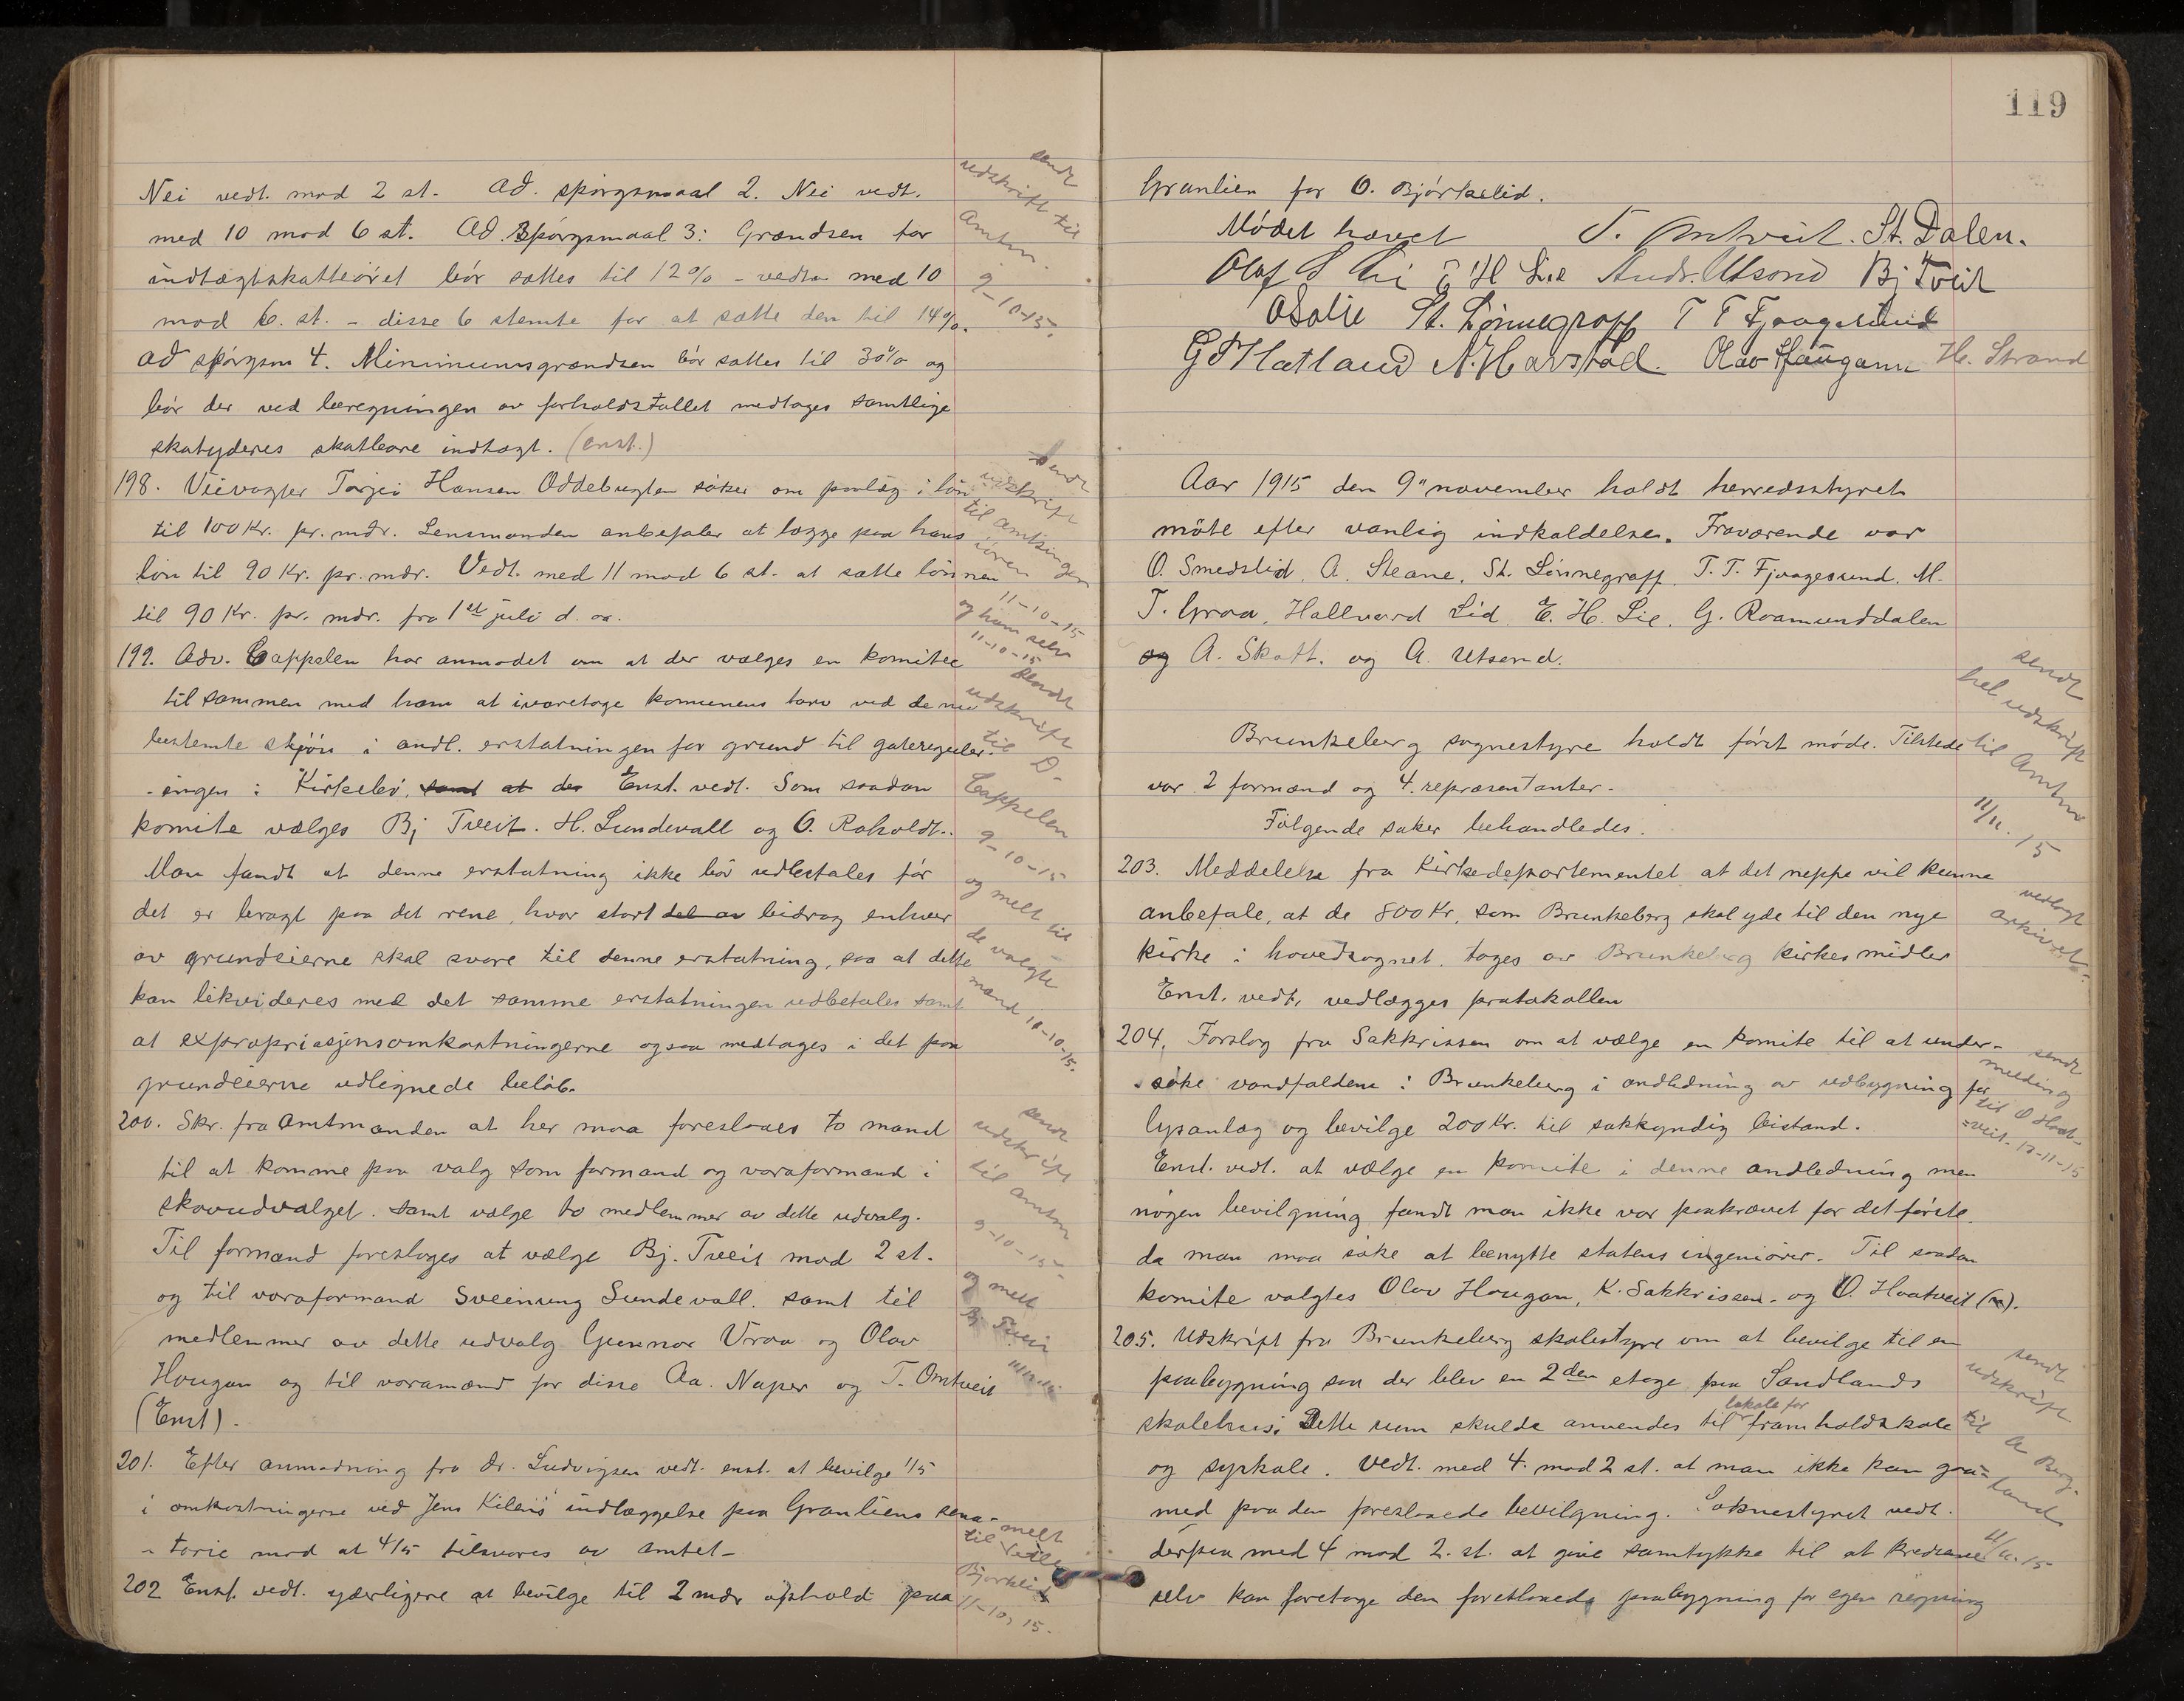 Nei vedt. mod 2 st. Ad. spörgsmaal 2. Nei vedt.
med 10 mod 6 st. Ad. Spörgsmaal 3: Grændsen for
indtægtskatteöret bör sættes til 12% – vedta med 10
mod 6. st. – disse 6 stemte for at sætte den til 14%.
Ad spörgsm 4. Minimumsgrændsen bör sættes til 30% og
bör der ved beregningen av forholdstallet medtages samtlige
skatyderes skatbare indtægt. (Enst.)
sendt
udskrift til
Amtm.
9-10-15.
198. Veivogter Torjei Hansen Oddebugten söker om paalæg i lön
til 100 Kr. pr. mdr. Lensmanden anbefaler at lægge paa hans
lön til 90 Kr. pr. mdr. Vedt. med 11 mod 6 st. at sætte lönnen
til 90 Kr. pr. mdr. fra 1st juli d. aa.
sendt
udskrift
til amtsingen
iören
11-10-15
og ham selv
11-10-15
199. Adv. Cappelen har anmodet om at der vælges en komitee
til sammen med ham at ivaretage komunens tarv ved de nu
bestemte skjön i andl. erstatningen for grund til gatereguler-
-ingen i Kirkebö, samt at der Enst. vedt. Som saadan
komite vælges Bj Tveit. H. Lundevall og O. Roholdt.
Man fandt at denne erstatning ikke bör udbetales för
det er bragt paa det rene, hvor stort del av bidrag enhver
av grundeierne skal svare til denne erstatning, saa at dette
kan likvideres med det samme erstatningen udbetales samt
at expropriasjonsomkostningerne ogsaa medtages i det paa
grundeierne udlignede belöb.
sendt
udskrift
til D-
Cappelen
9-10-15
og melt til
de valgte
mænd 10-10-15.
200. Skr. fra Amtmanden at her maa foreslaaes to mænd
til at komme paa valg som formand og varaformand i
skovudvalget. samt vælge to medlemmer av dette udvalg.
Til formand foreslages at vælge Bj. Tveit mod 2 st.
og til varaformand Sveinung Lundevall. samt til
medlemmer av dette udvalg Gunnar Vraa og Olav
Haugan og til varamænd for disse Aa. Naper og T. Omtveit
(Enst).
sendt
udskrift
til amtm
9-10-15-
og melt
Bj Tveit
201. Efter anmodning fra dr. Ludvigsen vedt. enst. at bevilge 1/5
i omkostningerne ved Jens Kilens indlæggelse paa Granliens sana-
- torie mod at 4/5 tilsvares av Amtet –
202 Enst. vedt. yderligere at bevilge til 2 mdr ophold paa
melt
til
Björkelid
11-10, 15.
119
Granlien for O. Björkelid.
Mödet hævet T. Omtveit. St. Dalen.
Olaf S Li E H Lie Andr. Utsond Bj Tveit
O Solie St. Lönnegraff T T Fjaagesund
G S Hatland N. Harstad. Olav Haugann H. Strand
Aar 1915 den 9" november holdt herredsstyret
möte efter vanlig indkaldelse. Fraværende var
O. Smedslid, A. Steane, St. Lönnegraff, T. T. Fjaagesund. M.
T. Graa, Hallvard Lid, E. H. Lie, G. Raamunddalen
og A. Skatt. og A. Utsend.
Brunkeberg sognestyre holdt först möde. Tilstede
var 2 formænd og 4. repræsentanter.
Fölgende saker behandledes.
sendt
hel udskrift
til Amtm
11/11. 15
203. Meddelelse fra Kirkedepartementet at det neppe vil kunne
anbefale, at de 800 Kr, som Brunkeberg skal yde til den nye
kirke i hovedsognet, tages av Brunkeberg kirkes midler
Enst. vedt. vedlægges protokollen
vedlagt
arkivet.
204. Forslag fra Sakkrissen om at vælge en komite til at under-
- söke vandfaldene i Brunkeberg i andledning av udbygning for
lysanlæg og bevilge 200 Kr. til sakkyndig bistand.
Enst. vedt. at vælge en komite i denne andledning men
nogen bevilgning fandt man ikke var paakrævet for det förste
da man maa söke at benytte statens ingeniörer. Til saadan
komite valgtes Olav Haugan, K. Sakkrissen. og O. Hoatveit (n).
sendt
melding
til O Hoat-
-veit. 12-11-15
205. Udskrift fra Brunkeberg skolestyre om at bevilge til en
paabygning saa der blev en 2den etage paa Sandlands
skolehus; Dette rum skulde anvendes til lokale for framhaldskole
og syskole. Vedt. med 4 mod 2 st. at man ikke kan gaa
med paa den foreslaaede bevilgning. Soknestyret vedt.
derpaa med 4 mod 2. st. at give samtykke til at kredsene
selv kan foretage den foreslaaede paabygning for egen regning
sendt
udskrift
til
A Berg-
land
11/11.15